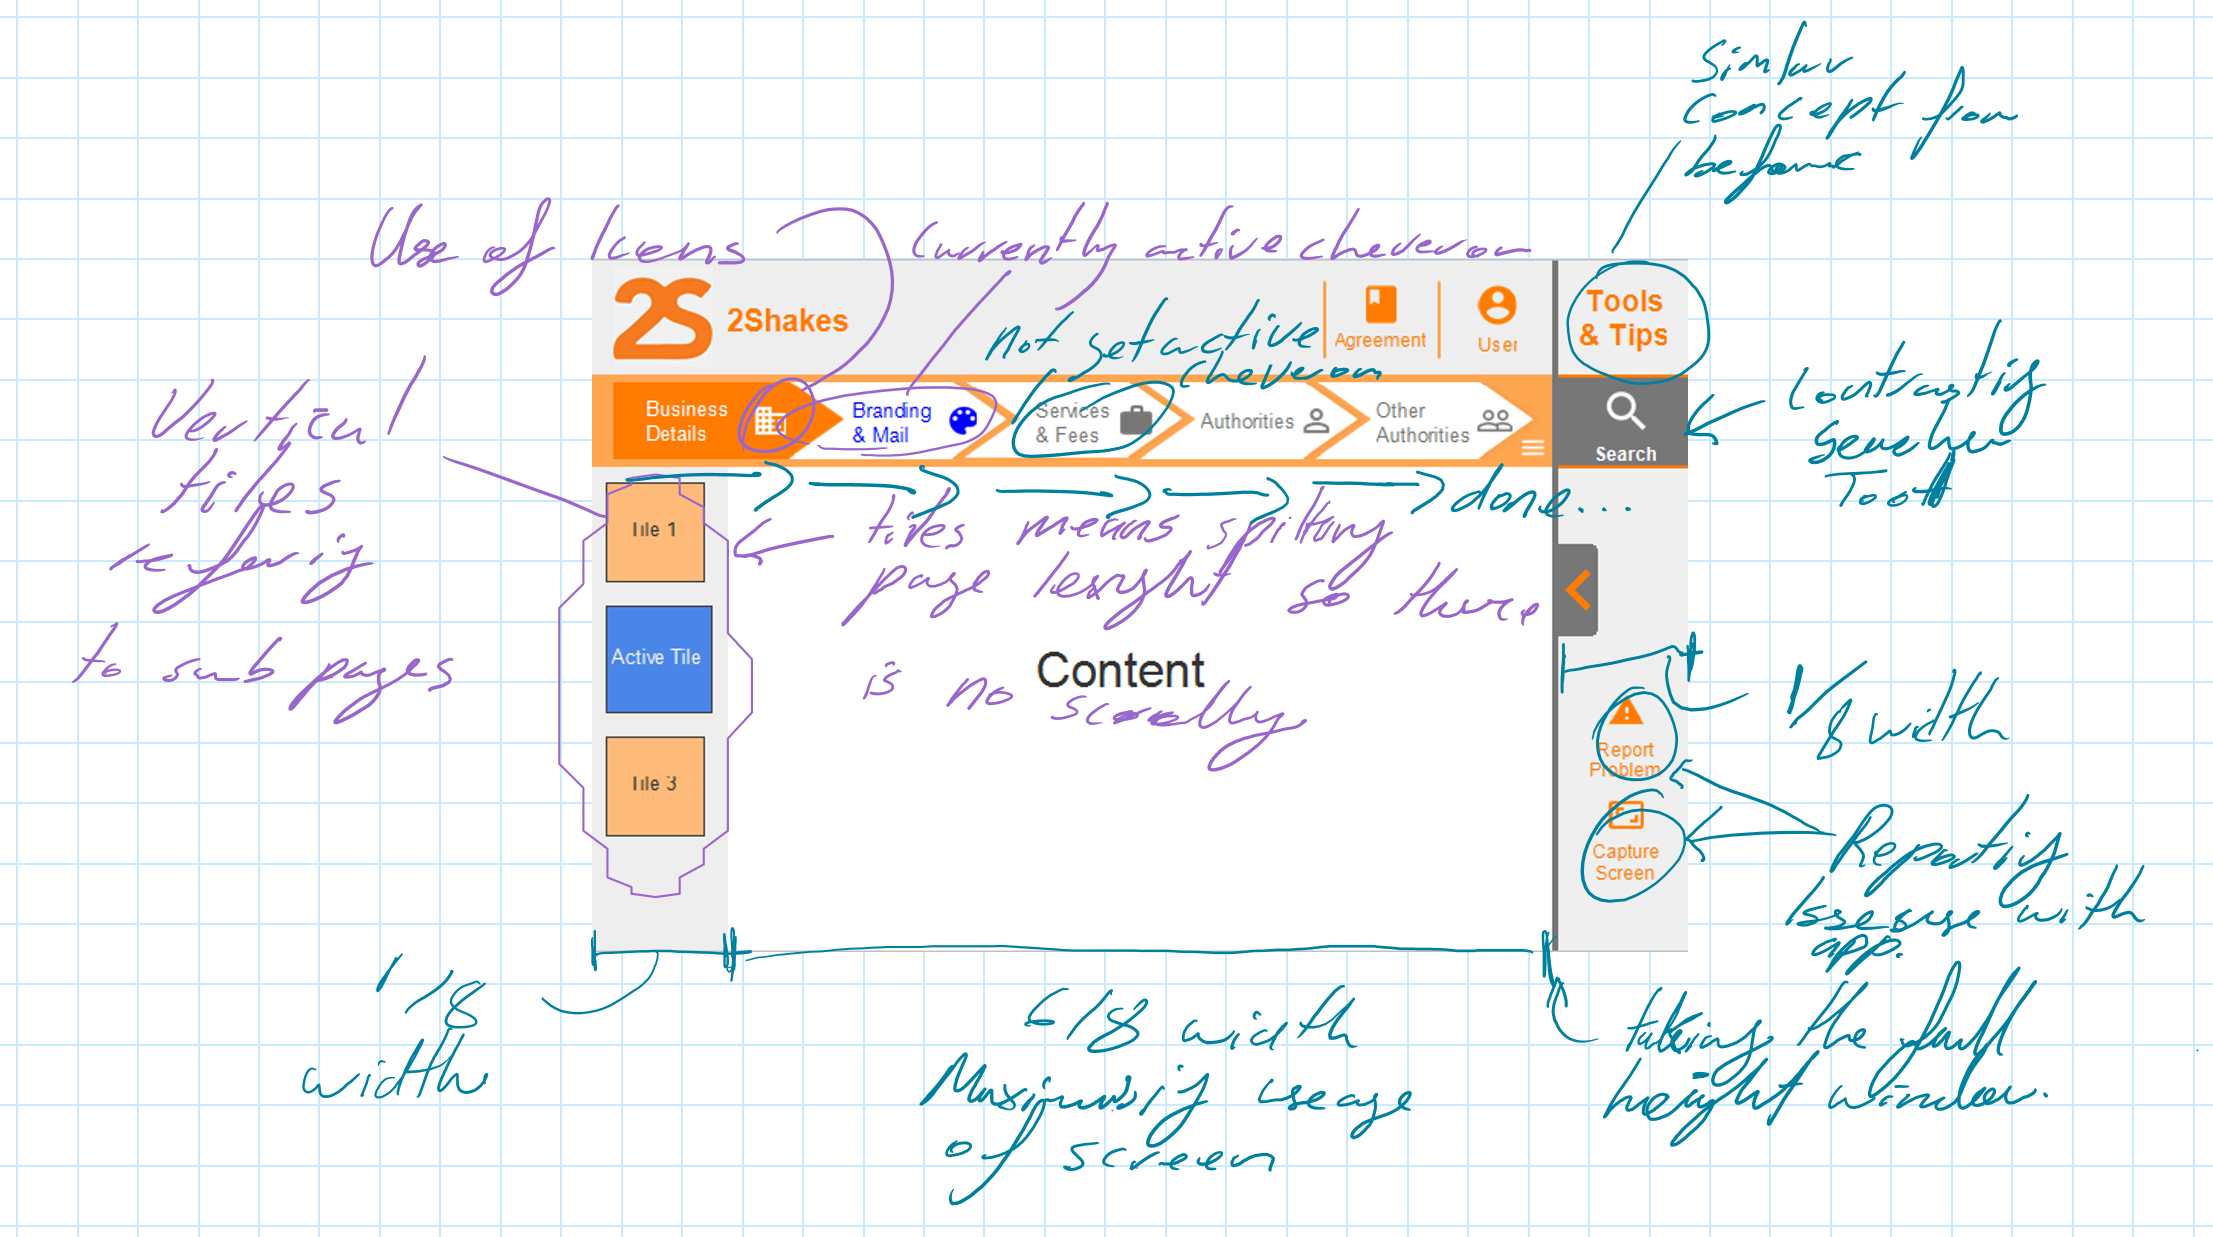 Similar
concept from
before
Use of Icons
Currently active cheveron
2S
2Shakes
not set active
cheveron
Agreement
User
Tools
& Tips
Business
Details
Branding
& Mail
Services
& Fees
Authorities
Other
Authorities
Search
Contrasting
Searcher
Tool
Vertical
tiles
refering
to sub pages
done...
Tile 1
tiles means spilting
page lenght so there
is no scrolly
Active Tile
Content
Tile 3
1/8 width
Report
Problem
Capture
Screen
Reporting
with
app.
1/8
width
6/8 width
useage
of screen
taking the full
height window.